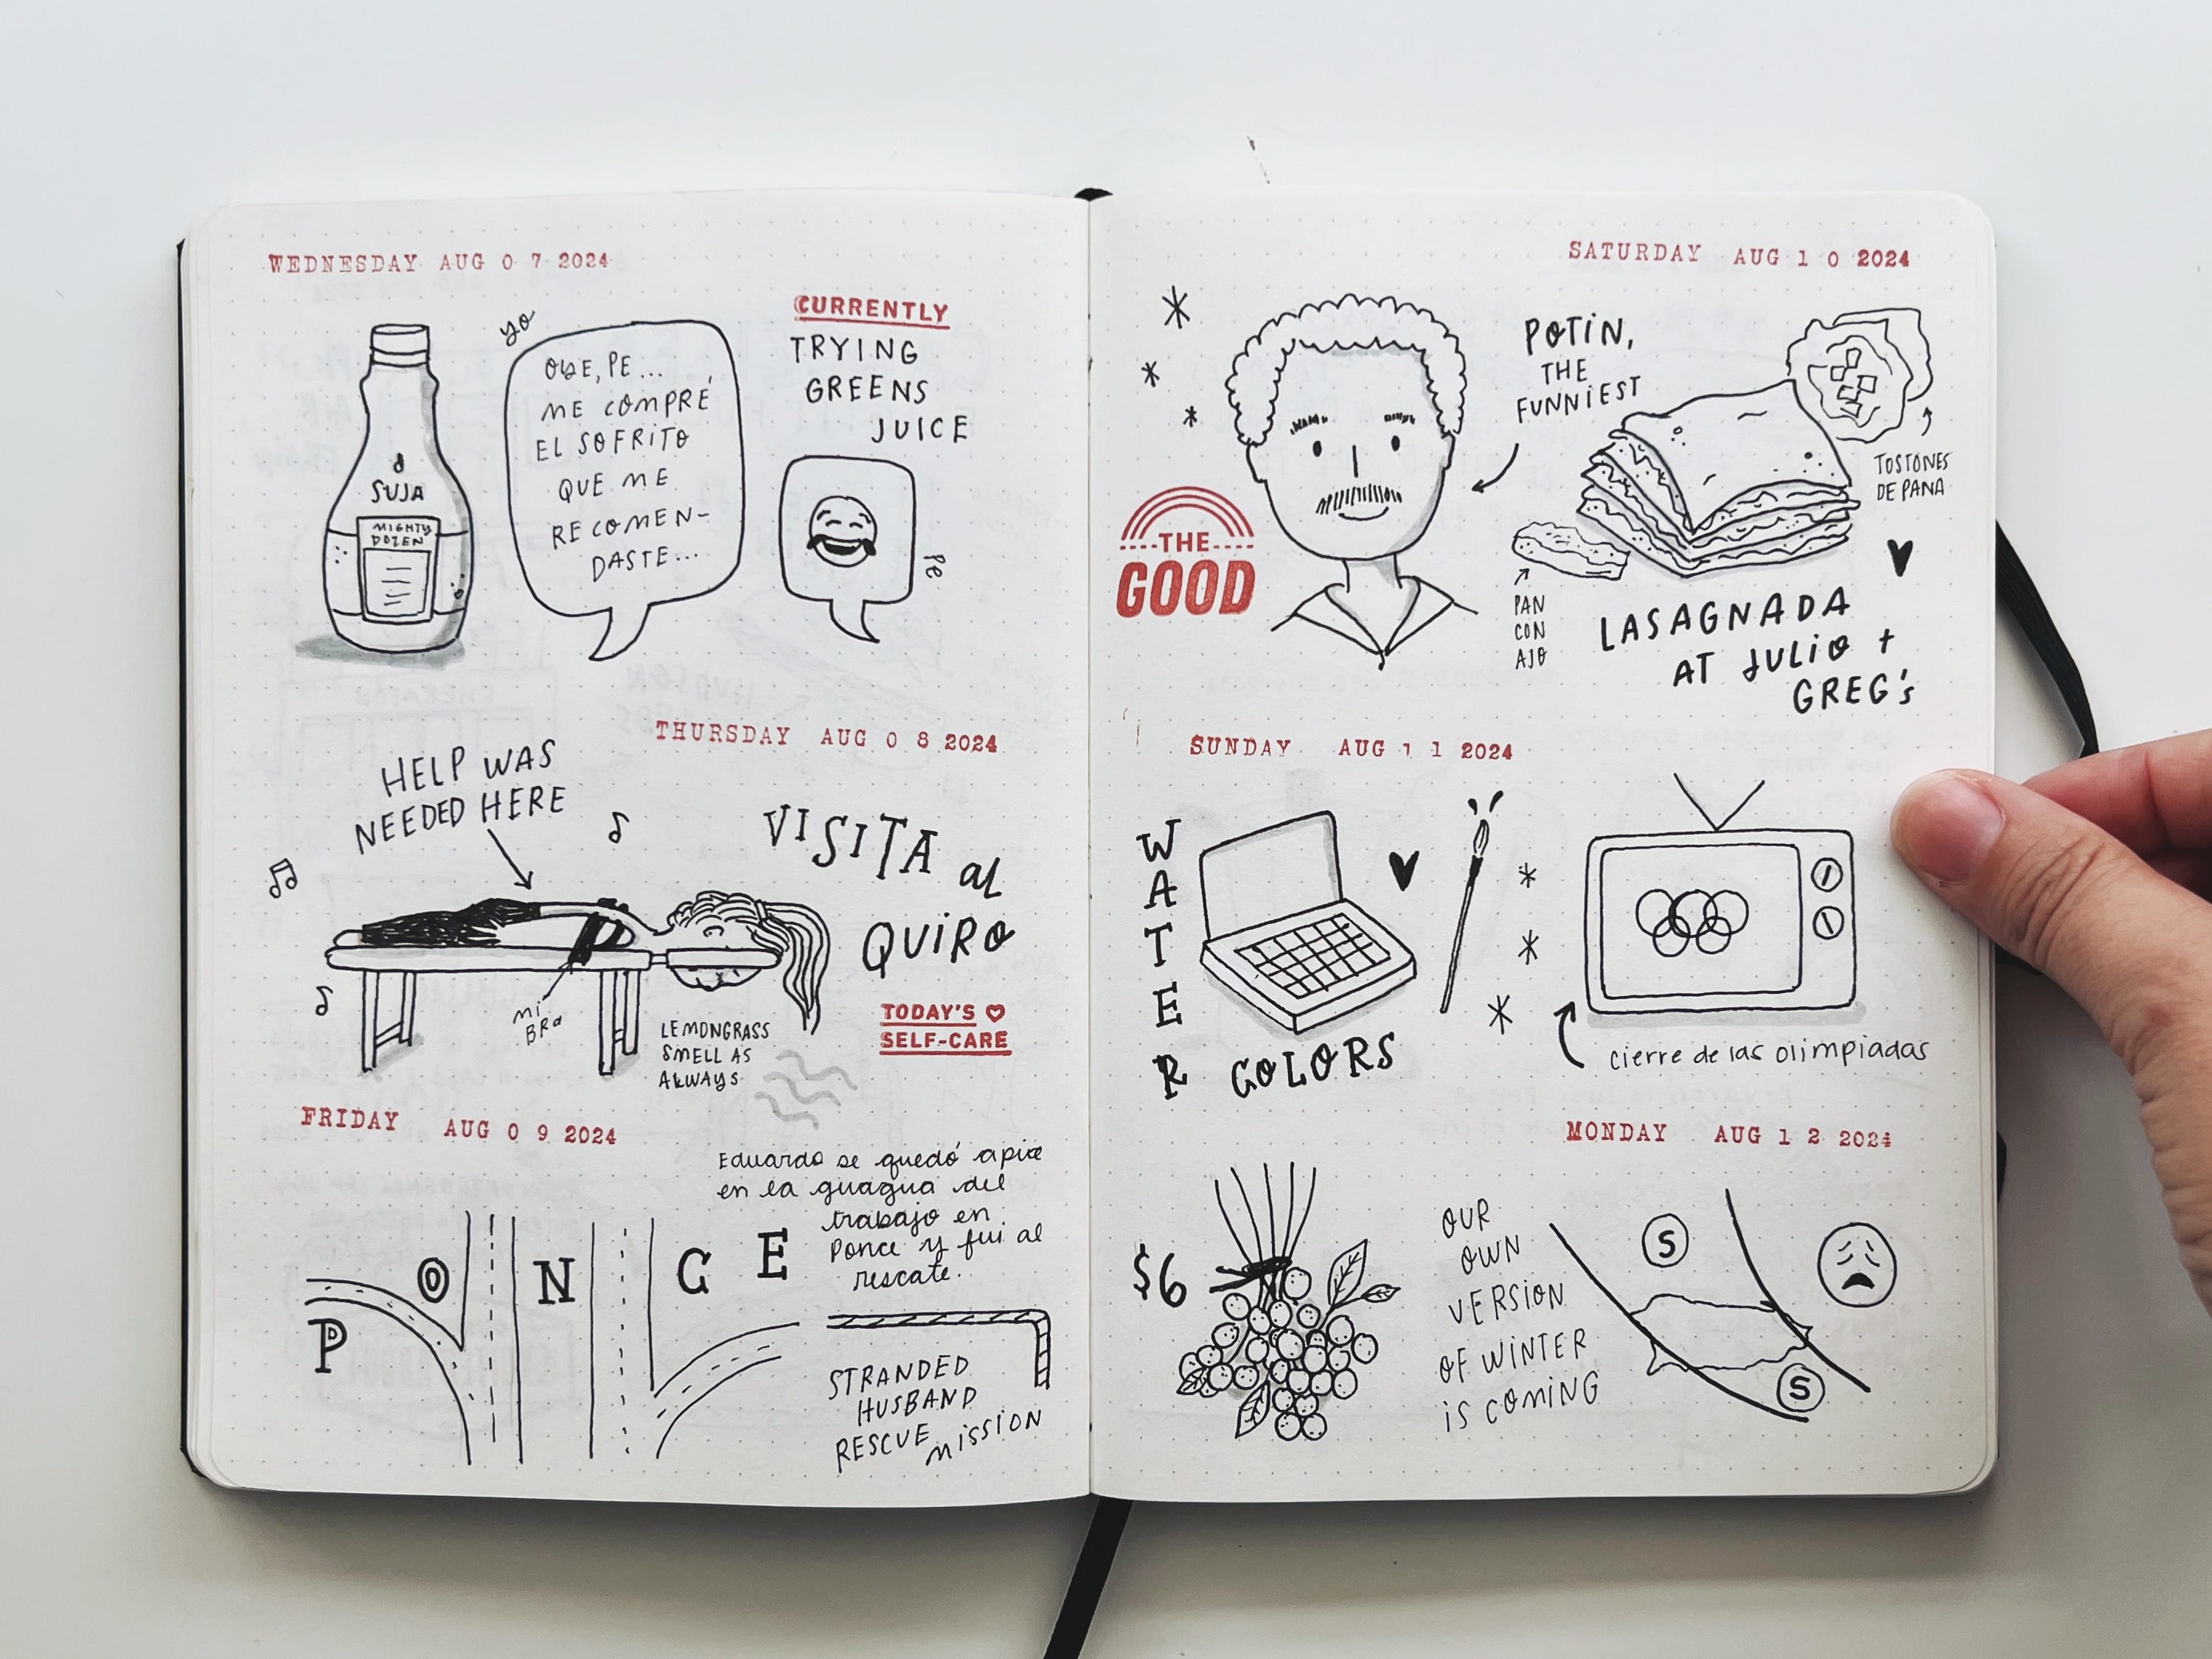 WEDNESDAY AUG 07 2024
SUJA
MIGHTY
DOZEN
yo
OYE, PE...
ME COMPRÉ
EL SOFRITO
QUE ME
RECOMEN-
DASTE...
CURRENTLY
TRYING
GREENS
JUICE
PE
THURSDAY AUG 08 2024
HELP WAS
NEEDED HERE
VISITA al
QUIRO
mi
BRA
LEMONGRASS
SMELL AS
ALWAYS
TODAY'S
SELF-CARE
FRIDAY AUG 09 2024
Eduardo se quedó a pie
en la guagua del
trabajo en
Ponce y fui al
rescate.
PONCE
STRANDED
HUSBAND
RESCUE MISSION
SATURDAY AUG 10 2024
THE
GOOD
POTIN,
THE
FUNNIEST
TOSTONES
DE PANA
PAN
CON
AJO
LASAGNADA
AT JULIO +
GREG'S
SUNDAY AUG 11 2024
WATER
COLORS
cierre de las olimpiadas
MONDAY AUG 12 2024
$6
OUR
OWN
VERSION
OF WINTER
IS COMING
S
S